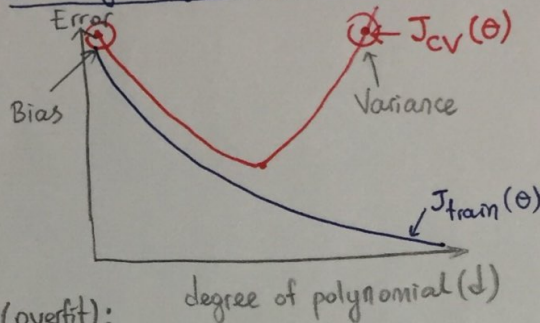 Error
J_CV(θ)
Bias
Variance
J_train(θ)
degree of polynomial (d)
(overfit):